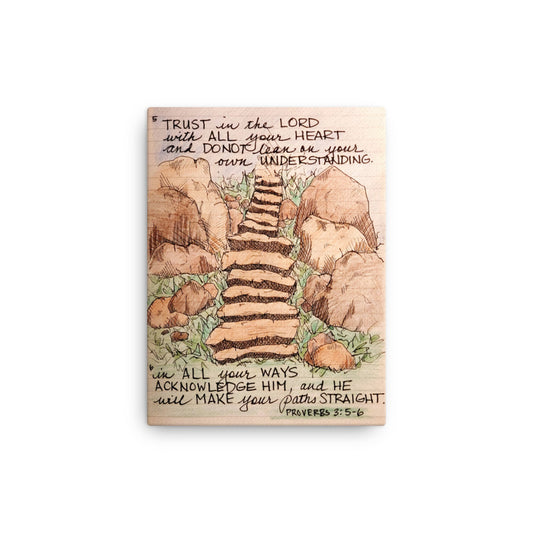 5 TRUST in the LORD
with ALL your HEART
and DO NOT lean on your
own UNDERSTANDING.
6 in ALL your WAYS
ACKNOWLEDGE HIM, and HE
will MAKE your paths STRAIGHT.
PROVERBS 3:5-6